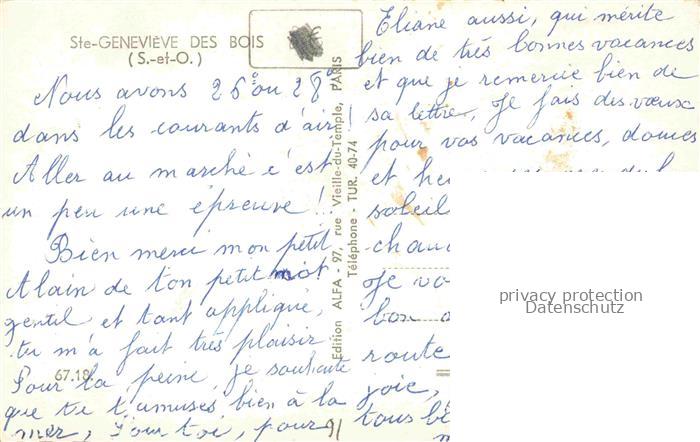 Ste-GENEVIÈVE DES BOIS
(S.-et-O.)
Nous avons 26° ou 28°
dans les courants d'air!
Aller au marché c'est
un peu une épreuve!!
Bien merci mon petit
Alain de ton petit mot
gentil et tant appliqué,
tu m'a fait très plaisir
67.18.
Pour la peine, je souhaite
que tu t'amuses bien à la
mer, Pour toi, pour
91
Edition ALFA - 97, rue Vieille-du-Temple, PARIS
Téléphone - TUR. 40-74
Eliane aussi, qui mérite
bien de très bonnes vacances
et que je remercie bien de
sa lettre, Je fais des vœux
pour vos vacances, douces
et
soleil
Je
bon
route
joie,
tous
privacy protection
Datenschutz